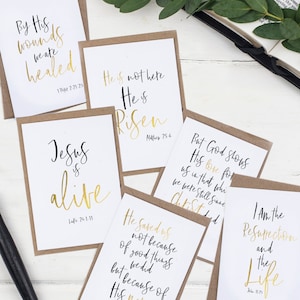 By His
wounds
we are
healed
He is not here
He is
Risen
Jesus
is
alive
But God shows
His love for
us in that while
we were still sinners
Christ
He saved us
not because
of good things
we did
but because of
His
I Am the
Resurrection
and the
Life